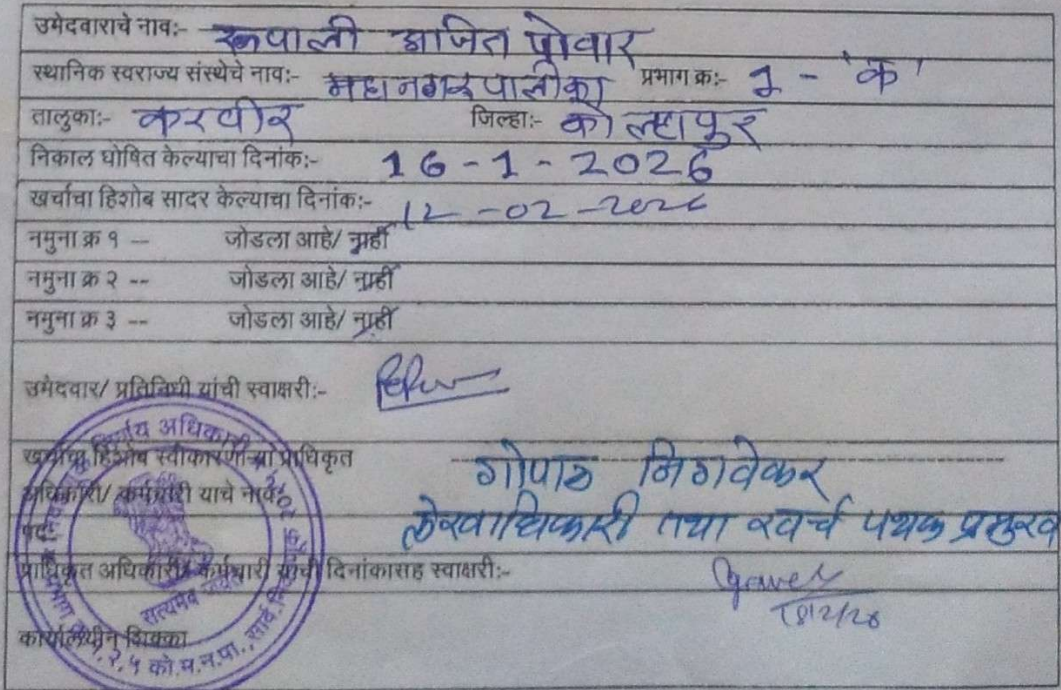 उमेदवाराचे नाव:- रूपाली अजित पोवार
स्थानिक स्वराज्य संस्थेचे नाव:- महानगरपालीका प्रभाग क्र:- 1 - 'क'
तालुका:- करवीर जिल्हा:- कोल्हापुर
निकाल घोषित केल्याचा दिनांक:- 16-1-2026
खर्चाचा हिशोब सादर केल्याचा दिनांक:- 12-02-2026
नमुना क्र १ -- जोडला आहे/ नाही
नमुना क्र २ -- जोडला आहे/ नाही
नमुना क्र ३ -- जोडला आहे/ नाही
उमेदवार/ प्रतिनिधी यांची स्वाक्षरी:-
खर्चाचा हिशोब स्वीकारणाऱ्या प्राधिकृत
अधिकारी/ कर्मचारी याचे नाव:- गोपाळ निगवेकर
पद:- लेखाधिकारी तथा खर्च पथक प्रमुख
प्राधिकृत अधिकारी/ कर्मचारी यांची दिनांकासह स्वाक्षरी:-
कार्यालयीन शिक्का
निर्णय अधिकारी
सत्यमेव जयते
१,२,५ को.म.न.पा.,